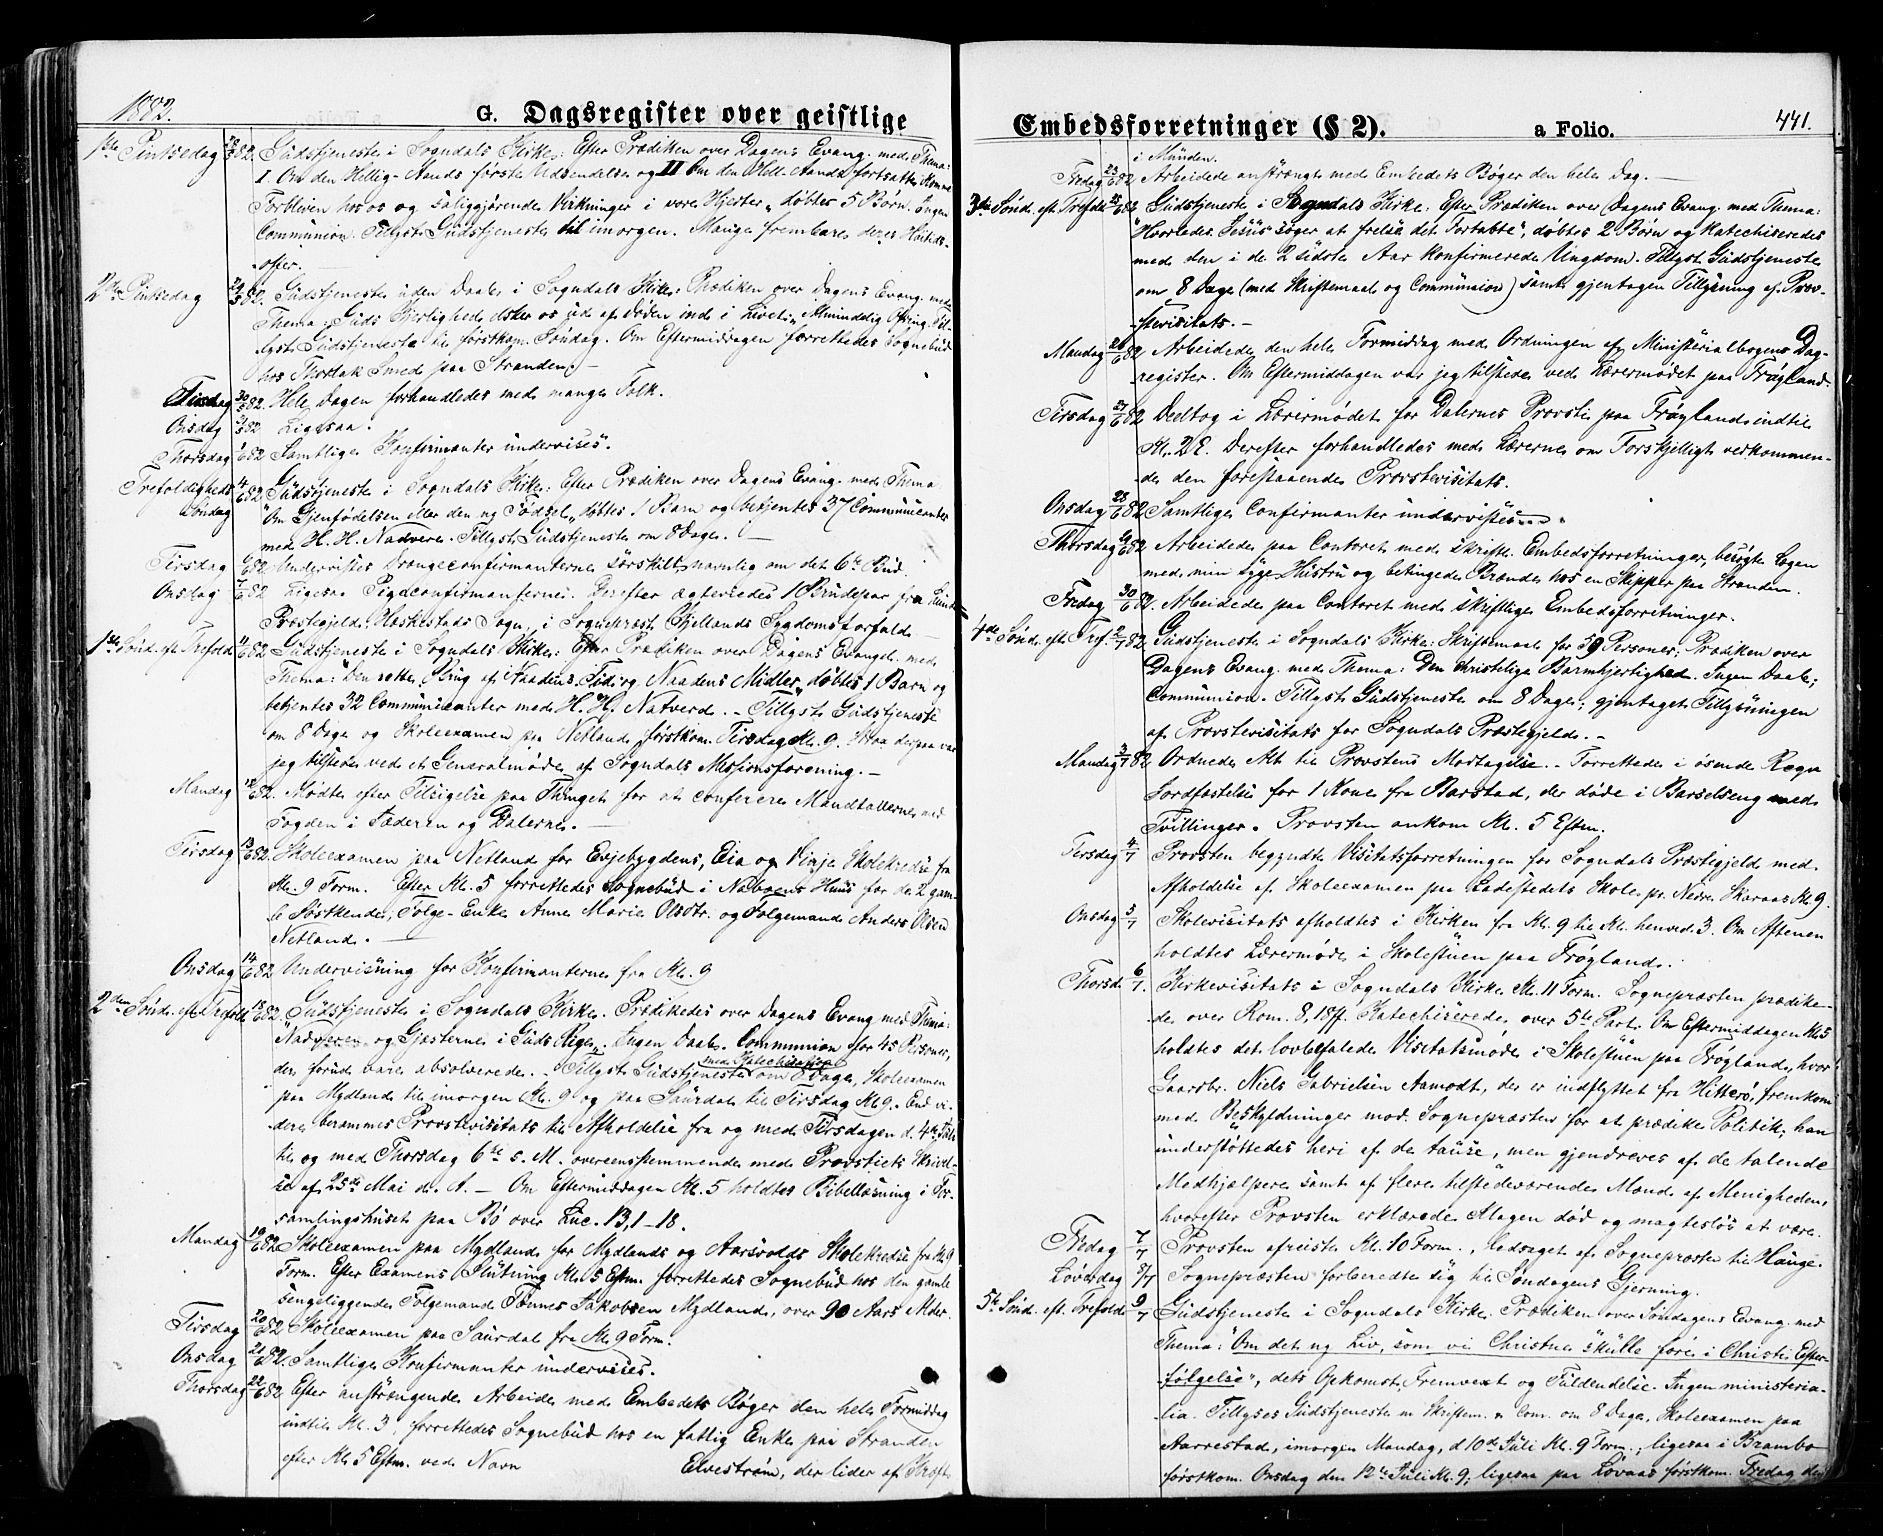 1882.
G. Dagsregister over geistlige
1ste Pintsedag 28/5 82. Gudstjeneste i Sogndals Kirke: Efter Prædiken over Dagens Evang. med Thema:
I. Om den Hellig-Aands første Udsendelse og II Om den Hell-Aands fortsatte Komme
Forbliven hos os og saliggjørende Virkninger i vore Hjerter" døbtes 5 Børn. Ingen
Communion. Tillyst Gudstjeneste til imorgen. Mange frembare deres Høitids-
offer.
2den Pintsedag 29/5 82. Gudstjeneste uden Daab i Sogndals Kirke: Prædiken over Dagens Evang. med
Thema: Guds Kjerlighed os ud af Døden ind i Livet". Almindelig Ofring. Til-
lyst Gudstjeneste til førstkom. Søndag. Om Eftermiddagen forrettedes Sognebud
hos Thorlak Smed paa Stranden.
Tirsdag 30/5 82. Hele Dagen forhandledes med mange Folk.
Onsdag 31/5 82 Ligesaa.
Thorsdag 1/6 82 Samtlige Konfirmanter undervises.
Trefoldigheds 4/6 82 Gudstjeneste i Sogndals Kirke: Efter Prædiken over Dagens Evang. med Thema
Søndag "Om Gjenfødelsen eller den ny Fødsel" døbtes 1 Barn og betjentes 37 Communicanter
med H. H. Nadvere. Tillyst Gudstjeneste om 8 Dage.
Tirsdag 6/6 82 Undervistes Drengeconfirmanterne særskilt, navnlig om det 6te Bud.
Onsdag 7/6 82 Ligesaa Pigeconfirmanterne. Derefter ægteviedes 1 Brudepar fra
Præstegjeld, Heskestads Sogn, i Sognepræst Kjellands Sygdomsforfald.
1ste Sønd. eft. Trefold. 11/6 82 Gudstjeneste i Sogndals Kirke: Efter Prædiken over Dagens Evangel. med
Thema: "Den rette Brug af Naadens Tid og Naadens Midler" døbtes 1 Barn og
betjentes 32 Communicanter med H. H. Natverd. - Tillyst Gudstjeneste
om 8 Dage og Skoleexamen paa Netland førstkom. Tirsdag Kl. 9. Strax derpaa var
jeg tilstede ved et Generalmøde af Sogndals Missionsforening.
Mandag 12/6 82. Mødte efter Tilsigelse paa Thinget for at conferere Mandtallerne med
Fogden i Jæderen og Dalerne.
Tirsdag 13/6 82. Skoleexamen paa Netland for Evjebygdens, Eia og Vinje Skolekredse fra
Kl. 9 Form. Efter Kl. 5 forrettedes Sognebud i Naboens Huus for de 2 gam-
le Søskende, Følge-Enke Anne Marie Olsdtr. og Følgemand Anders Olsen
Netland.
Onsdag 14/6 82 Undervisning for Konfirmanterne fra Kl. 9
2den Sønd. eft. Trefold. 18/6 82. Gudstjeneste i Sogndals Kirke. Prædikedes over Dagens Evang med Thema:
"Nadveren og Gjæsterne i Guds Rige". Ingen Daab. Communion for 45 Personer,
der forud vare absolverede. - Tillyst Gudstjeneste med Katechisation om 8 Dage, Skoleexamen
paa Mydland til imorgen Kl. 9 og paa Saurdal til Tirsdag Kl. 9. End vi-
dere berammes Provstevisitats til Afholdelse fra og med Tirsdagen d. 4de Juli
til og med Thorsdag 6te s. M. overeensstemmende med Provstiets Skrivel-
se af 25de Mai d. A. - Om Eftermiddagen Kl. 5 holdtes Bibellæsning i For-
samlingshuset paa Bø over Luc. 13, 1-18.
Mandag 19/6 82 Skoleexamen paa Mydland for Mydlands og Aarsvolds Skolekredse fra Kl 9
Form. Efter Examens Slutning Kl. 5 Eftm. forrettedes Sognebud hos den gamle
sengeliggende Følgemand Tønnes Jakobsen Mydland, over 90 Aars Alder.
Tirsdag 20/6 82 Skoleexamen paa Saurdal fra Kl. 9 Form.
Onsdag 21/6 82. Samtlige Konfirmanter undervises.
Thorsdag 22/6 82 Efter anstrængende Arbeide med Embedets Bøger den hele Formiddag
indtil Kl. 3, forrettedes Sognebud hos en fattig Enke paa Stranden
efter Kl 5 Eftm. ved Navn Elvestrøm, der lider af Kræft
Embedsforretninger (§ 2). a Folio. 441.
i Munden.
Fredag 23/6 82 Arbeidede anstrængt med Embedets Bøger den hele Dag.
3die Sønd. eft. Trefold. 25/6 82 Gudstjeneste i Sogndals Kirke. Efter Prædiken over Dagens Evang. med Thema:
"Hvorledes Jesus søger at frelse det Fortabte", døbtes 2 Børn og katechiseredes
med den i de 2 sidste Aar konfirmerede Ungdom. Tillyst Gudstjeneste
om 8 Dage (med Skriftemaal og Communion) samt gjentagen Tillysning af Prov-
stevisitats.
Mandag 26/6 82 Arbeidede den hele Formiddag med Ordningen af Ministerialbogens Dag-
register. Om Eftermiddagen var jeg tilstede ved Lærermødet paa Frøyland.
Tirsdag 27/6 82 Deeltog i Lærermødet for Dalernes Provsti paa Frøyland indtil
Kl. 2 E. Derefter forhandledes med Lærerne om Forskjelligt vedkommen-
de den forestaaende Provstevisitats.
Onsdag 28/6 82 Samtlige Confirmanter undervistes.
Thorsdag 29/6 82 Arbeidede paa Contoret med skriftl. Embedsforretninger, besøgte Lægen
med min syge Hustru og betingede Brænde hos en Skipper paa Stranden.
Fredag 30/6 82. Arbeidede paa Contoret med skriftlige Embedsforretninger.
4de Sønd. eft. Tref. 2/7 82. Gudstjeneste i Sogndals Kirke: Skriftemaal for 59 Personer; Prædiken over
Dagens Evang. med Thema: Den christelige Barmhjertighed. Ingen Daab;
Communion. Tillyst Gudstjeneste om 8 Dage; gjentaget Tillysningen
af Provstevisitats for Sogndals Præstegjeld.
Mandag 3/7 82 Ordnedes Alt til Provstens Modtagelse. - Forrettedes i øsende Regn
Jordfæstelse for 1 Kone fra Barstad, der døde i Barselseng med
Tvillinger. Provsten ankom Kl. 5 Eftm.
Tirsdag 4/7 Provsten begyndte Visitatsforretningen for Sogndals Præstegjeld med
Afholdelse af Skoleexamen paa Ladestedets Skole pr. Nedre Skaraas Kl. 9.
Onsdag 5/7 Skolevisitats afholdtes i Kirken fra Kl. 9 til Kl. henved 3. Om Aftenen
holdtes Lærermøde i Skolestuen paa Frøyland.
Thorsd. 6/7. Kirkevisitats i Sogndals Kirke Kl. 11 Form. Sognepræsten prædike-
de over Rom. 8, 18ff. Katechiserede over 5te Part. Om Eftermiddagen Kl 5
holdtes det lovbefalede Visitatsmøde i Skolestuen paa Frøyland, hvor
Gaardbr. Niels Gabrielsen Aamodt, der er indflyttet fra Hitterø, fremkom
med Beskyldninger mod Sognepræsten for at prædike Politik; han
understøttedes heri af de tause, men gjendreves af de talende
Medhjælpere samt af flere tilstedeværende Mænd af Menigheden,
hvorefter Provsten erklærede Klagen død og magtesløs at være.
Fredag 7/7 Provsten afreiste Kl. 10 Form., ledsaget af Sognepræsten til Hauge.
Løverdag 8/7 Sognepræsten forberedte sig til Søndagens Gjerning.
5te Sønd. eft. Trefold. 9/7 Gudstjeneste i Sogndals Kirke. Prædiken over Søndagens Evang. med
Thema: "Om det ny Liv, som vi Christne skulle føre i Christi Efter-
følgelse", dets Opkomst, Fremvext og Fuldendelse. Ingen ministeria-
lia. Tillyses Gudstjeneste m Skriftem. & Com. om 8 Dage, Skoleexamen paa
Aarrestad, imorgen Mandag, d 10de Juli Kl. 9 Form., ligesaa i Brambo
førstkom. Onsdag den 12te Juli Kl. 9, ligesaa paa Løvaas førstkom. Fredag den